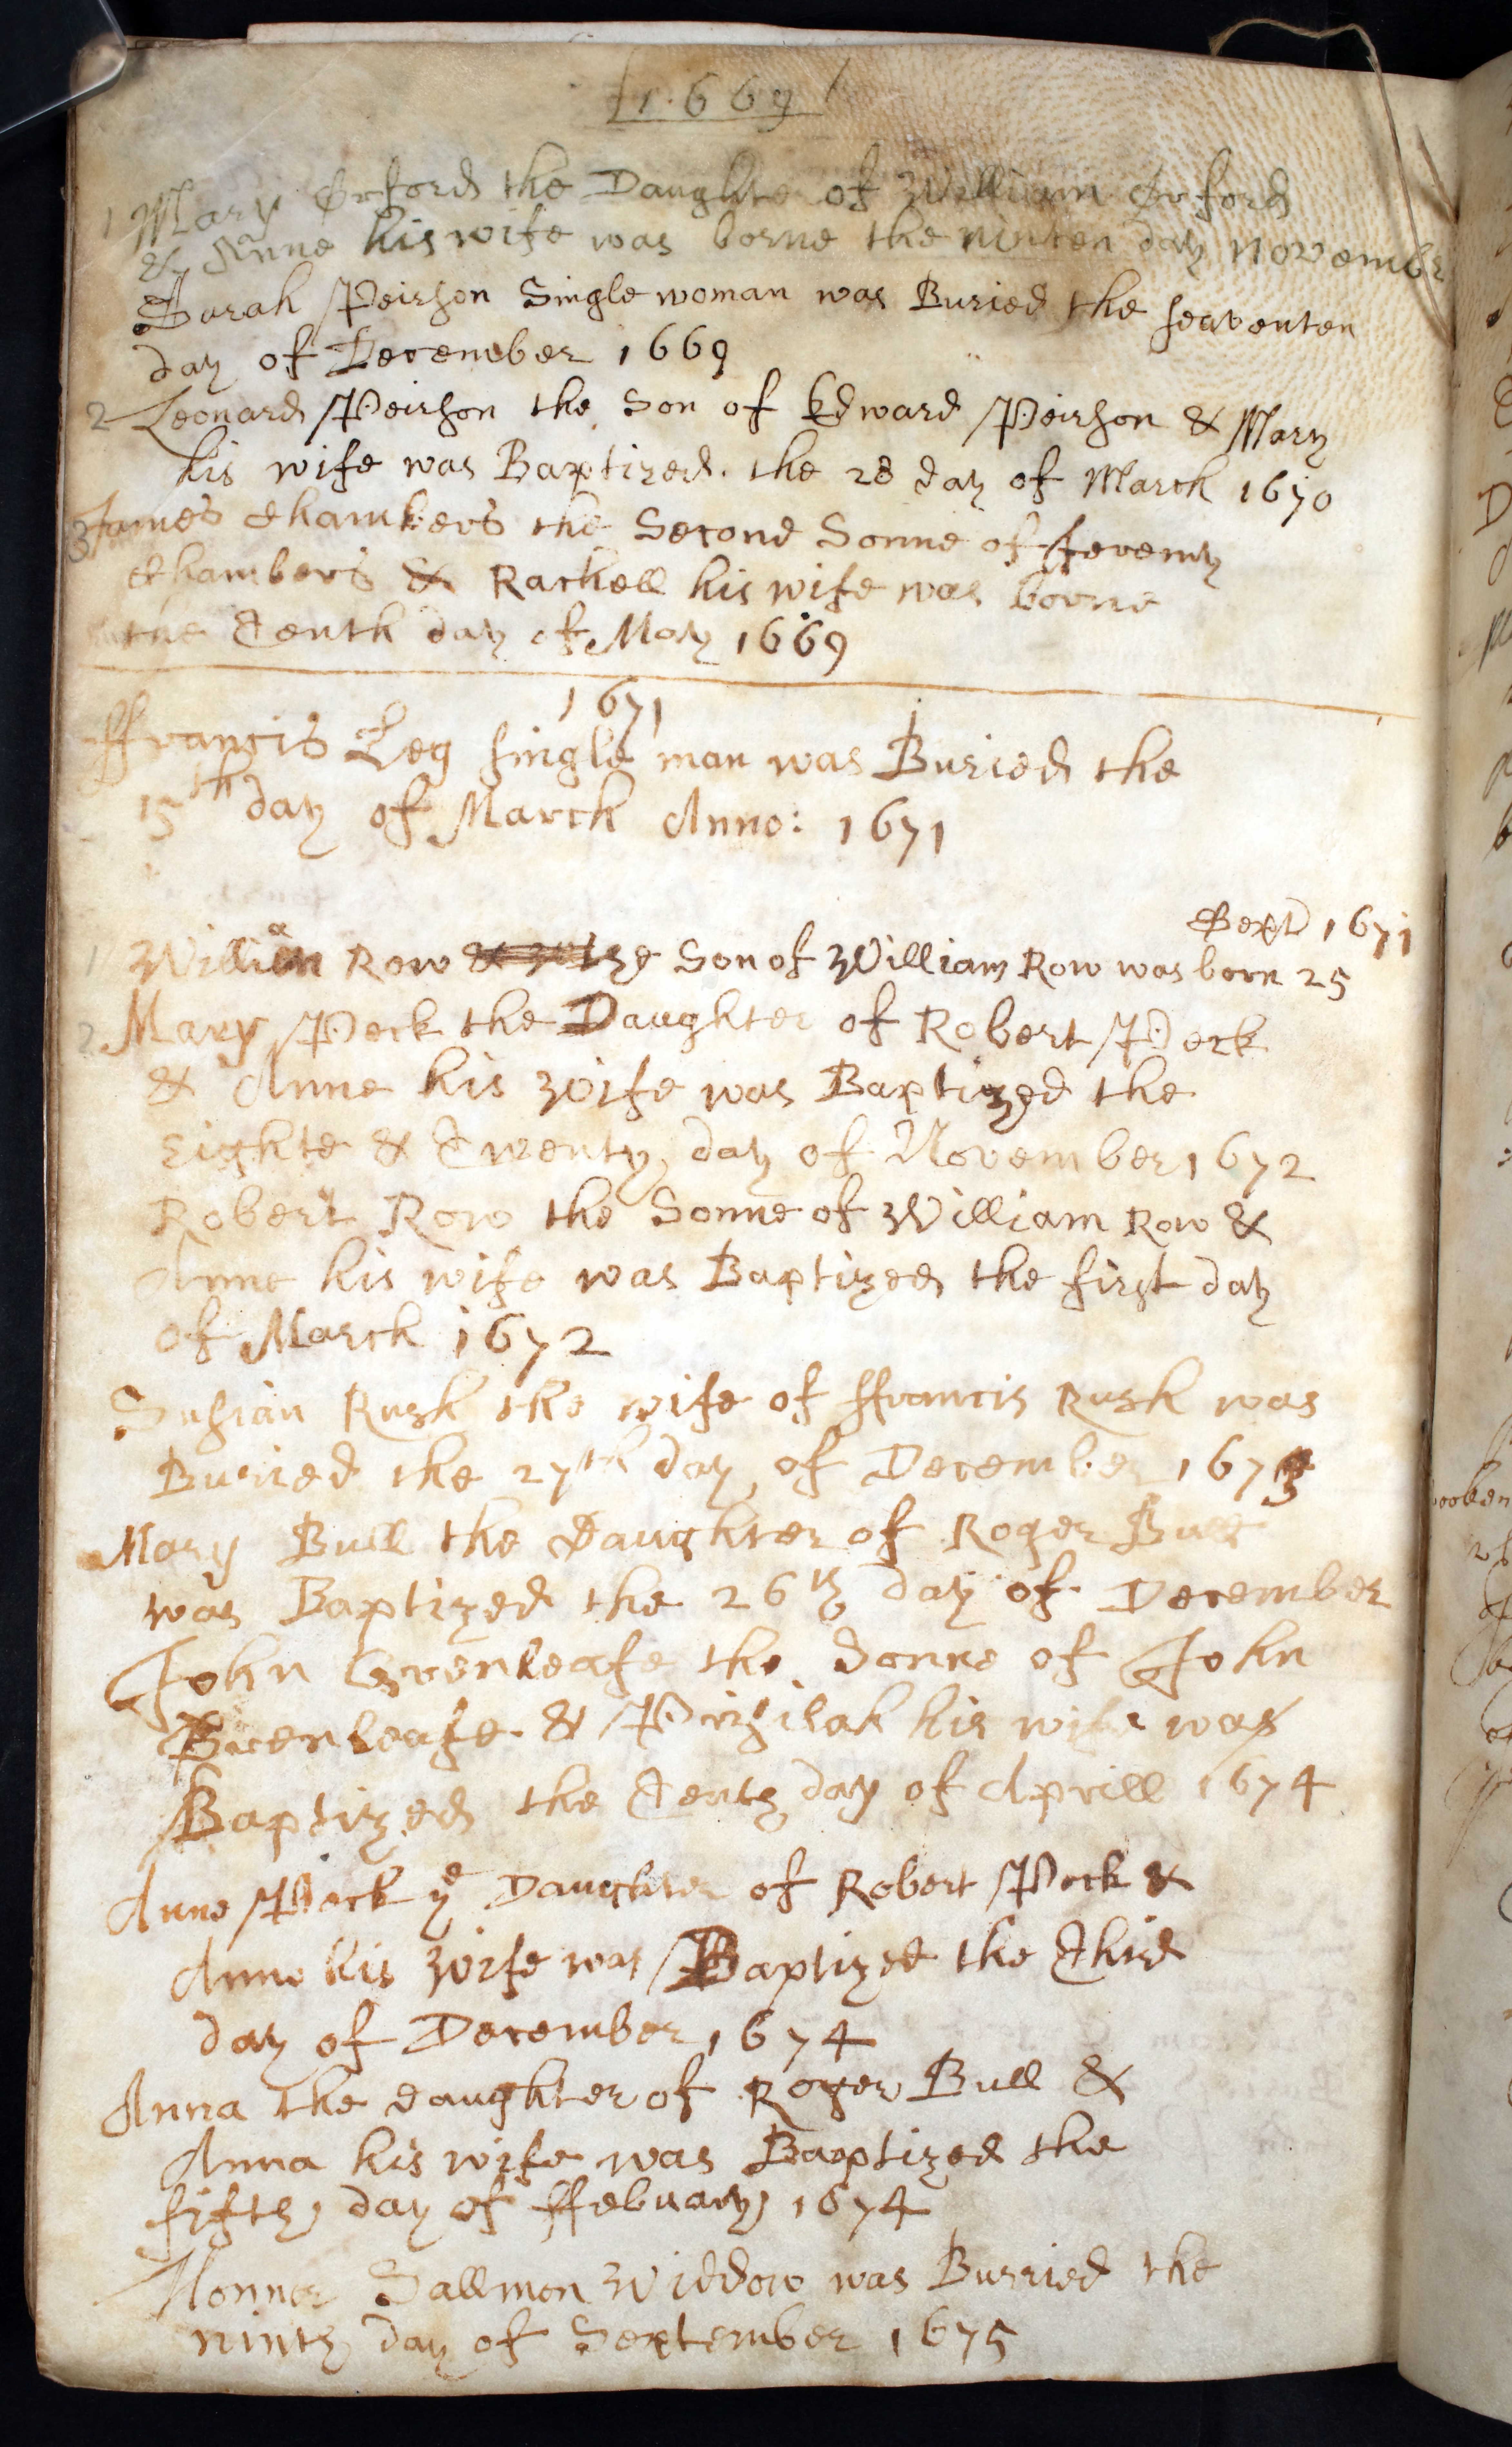 1669
1 Mary Orford the Daughter of William Orford
& Anne his wife was borne the ninten day November
Sarah Peirson Single woman was Buried the seaventen
day of December 1669
2 Leonard Peirson the Son of Edward Peirson & Mary
his wife was Baptized. the 28 day of March 1670
3 James Chambers the Second Sonne of Jeremy
Chambers & Rachell his wife was borne
the Tenth day of May 1669
1671
ffrancis Leg single man was Buried the
15th day of March Anno: 1671
Sept 1671
1 William Row & the Son of William Row was born 25
2 Mary Peck the Daughter of Robert Peck
& Anne his Wife was Baptized the
Eighte & Twenty day of November 1672
Robert Row the Sonne of William Row &
Anne his wife was Baptized the first day
of March 1672
Susian Rush the wife of ffrancis Rush was
Buried the 27th day of December 1673
Mary Bull the Daughter of Roger Bull
was Baptized the 26th day of December
John Grenleafe the Sonne of John
Grenleafe & Prisilah his wife was
Baptized the Tenth day of Aprill 1674
Anne Peck ye Daughter of Robert Peck &
Anne his Wife was Baptized the Third
day of December 1674
Anna the daughter of Roger Bull &
Anna his wife was Baptized the
fifth day of ffebuary 1674
Honner Sallmon Widdow was Burried the
ninth day of September 1675